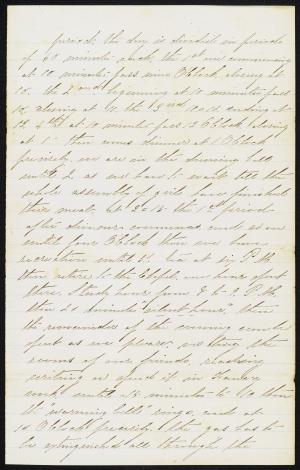 period. the day is divided in periods
of 50 minutes each, the 1st one commencing
at 10 minutes past nine O'Clock closing at
10. the 2nd beginning at 10 minutes past
closing at 11 the 3rd ending at
12, 4th at 10 minutes past 12 O'Clock closing
at 1. then comes dinner at 1 O'Clock
precisely, we are in the dining hall
until 2 as we have to wait till the
whole assembly of girls have finished
their meal. At 2-15 the 1st period
after dinner commences and so on
until four O'Clock then we have
recreation until 5½ tea at six P.M.
then retire to the Chapel, one hour spent
there, Study hour from 7 to 8 P.M.
then 20 minutes "silent hour," then
the remainder of the evening can be
spent as we please, visiting the
rooms of our friends, reading
writing or spend it in Fancy
work until 15 minutes to 10 then
the "warning bell" rings, and at
10 O'Clock precisely the gas has to
be extinguished all through the